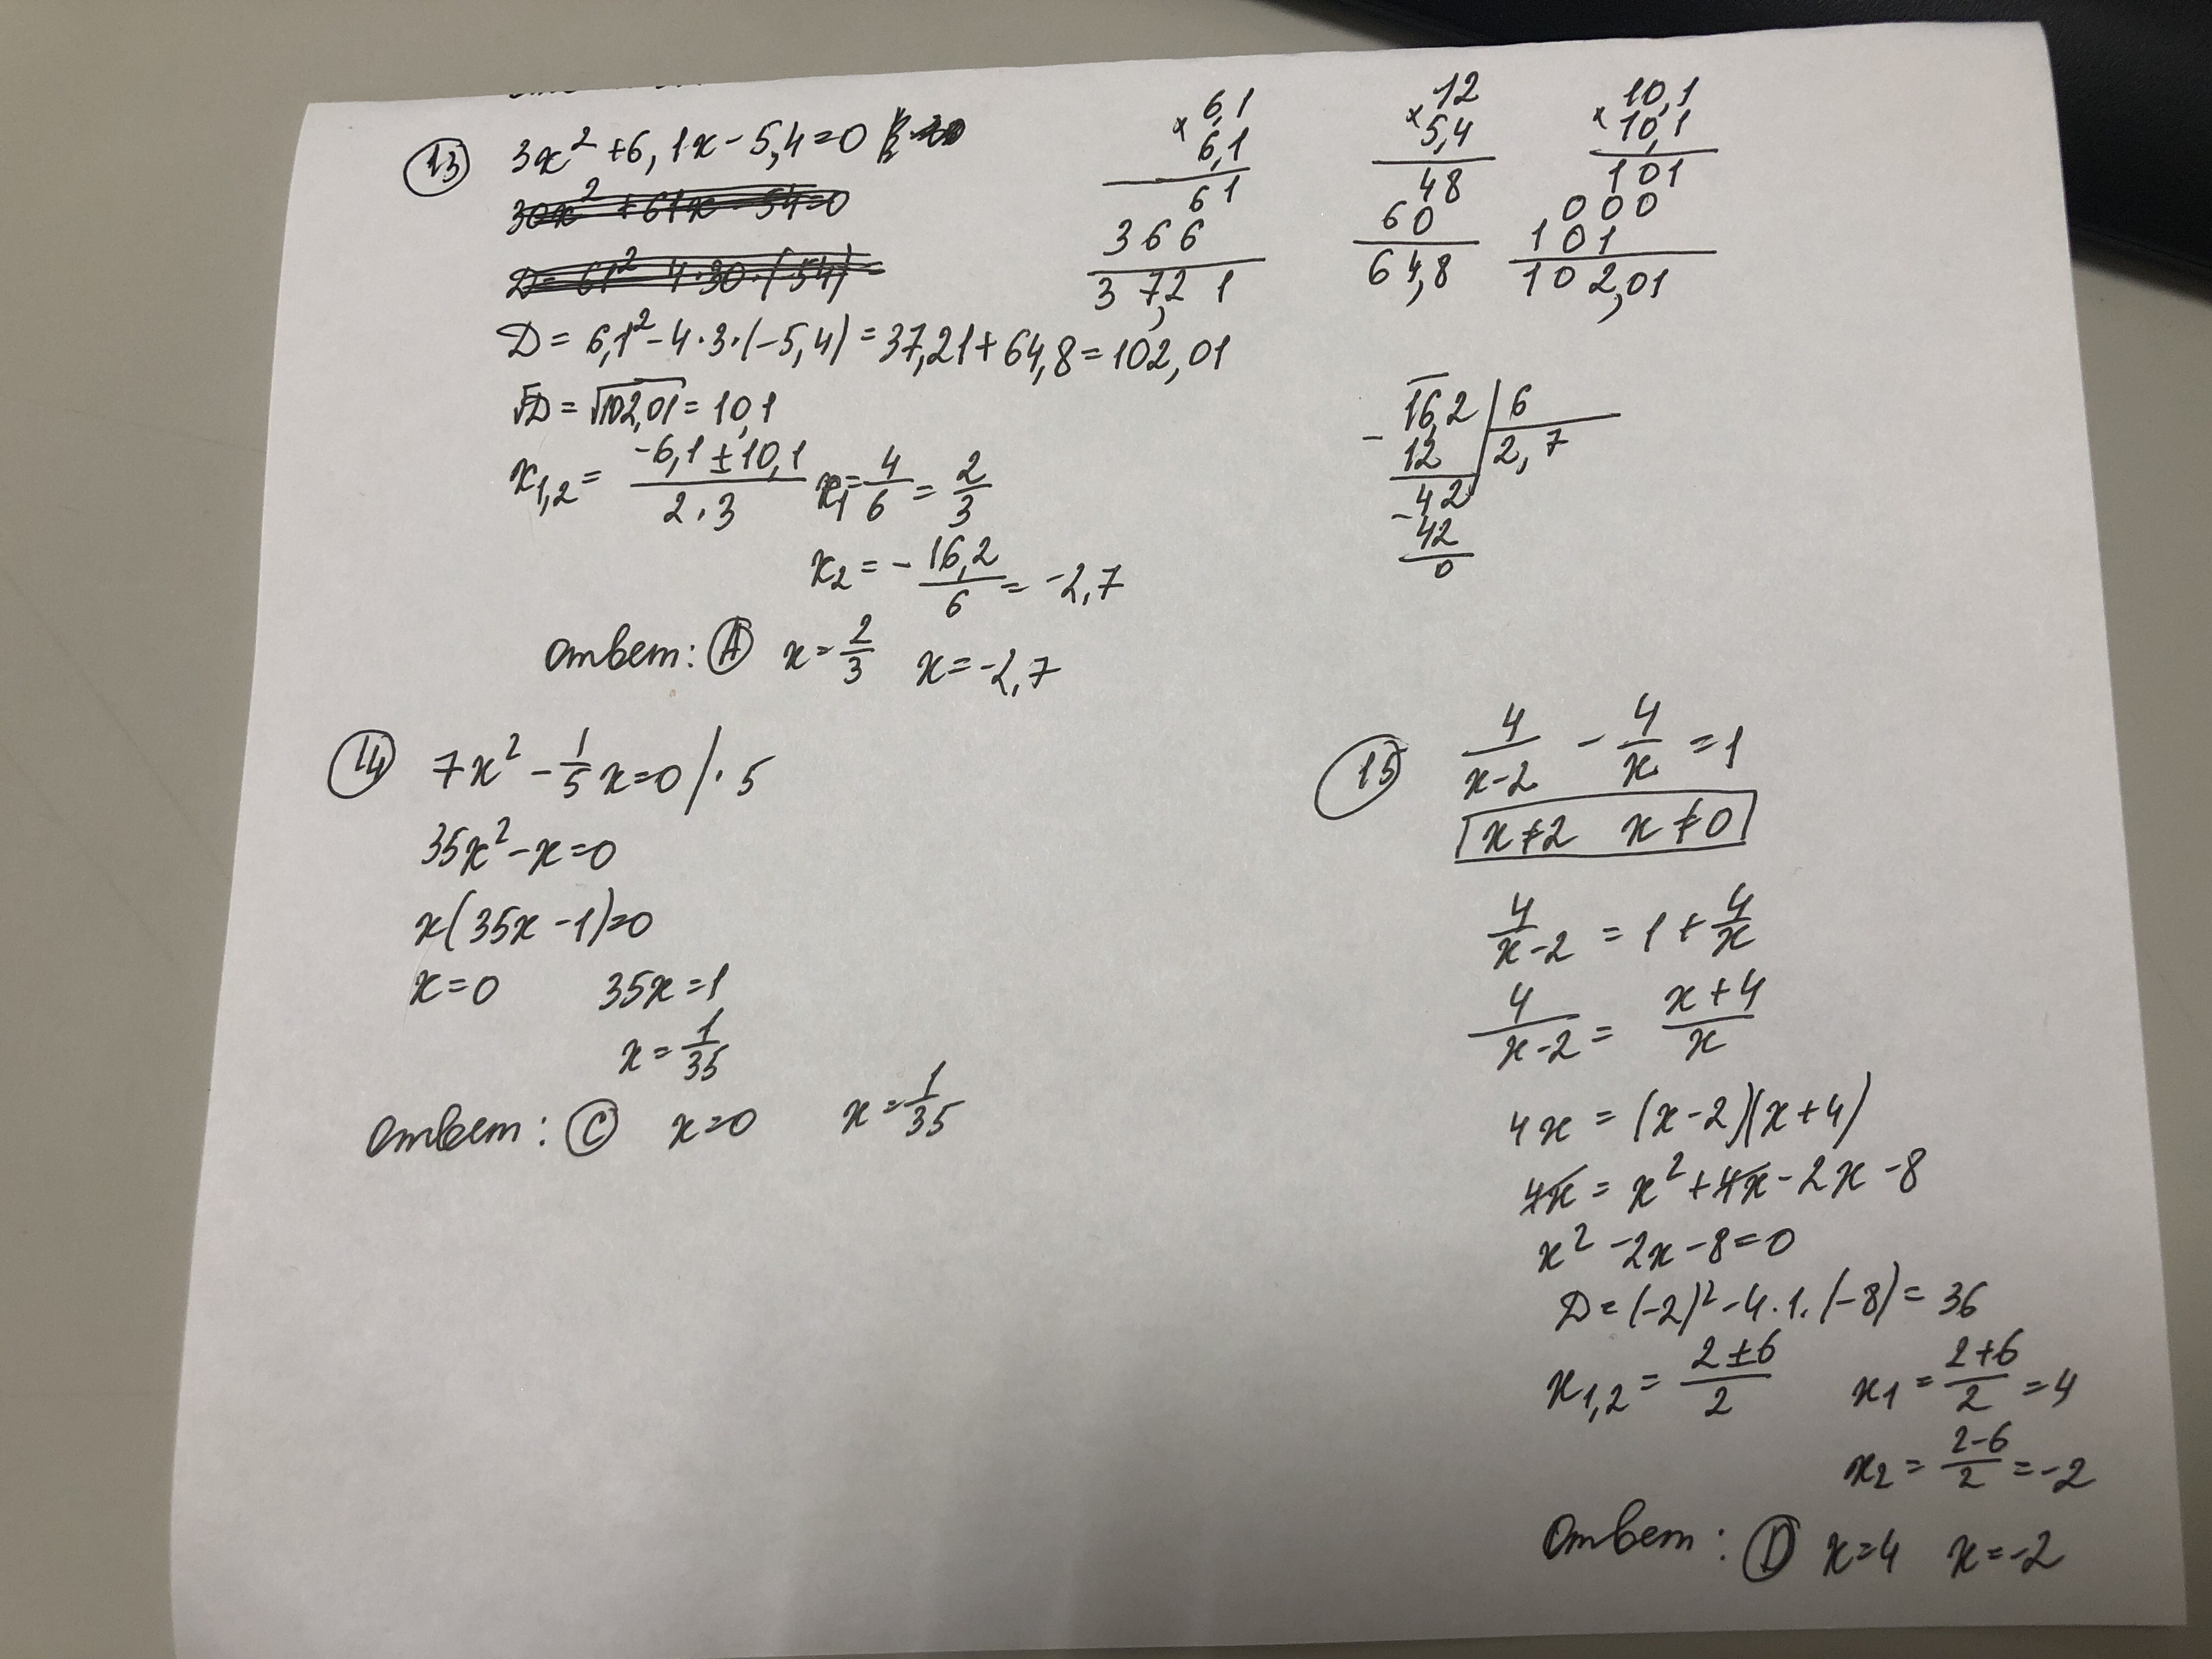 13 3x² + 6,1x - 5,4 = 0
30x² + 61x - 54 = 0
D = 61² - 4 · 30 · (-54) =
D = 6,1² - 4 · 3 · (-5,4) = 37,21 + 64,8 = 102,01
√D = √102,01 = 10,1
x1,2 = (-6,1 ± 10,1)/(2 · 3) x1 = 4/6 = 2/3
x2 = - 16,2/6 = -2,7
Ответ: A x = 2/3 x = -2,7
6,1
× 6,1
61
366
37,21
12
× 5,4
48
60
64,8
10,1
× 10,1
101
000
101
102,01
- 16,2 | 6
12 | 2,7
- 42
42
0
14 7x² - 1/5 x = 0 / · 5
35x² - x = 0
x(35x - 1) = 0
x = 0 35x = 1
x = 1/35
Ответ: C x = 0 x = 1/35
15 4/(x-2) - 4/x = 1
x ≠ 2 x ≠ 0
4/(x-2) = 1 + 4/x
4/(x-2) = (x+4)/x
4x = (x-2)(x+4)
4x = x² + 4x - 2x - 8
x² - 2x - 8 = 0
D = (-2)² - 4 · 1 · (-8) = 36
x1,2 = (2 ± 6)/2 x1 = (2+6)/2 = 4
x2 = (2-6)/2 = -2
Ответ: D x = 4 x = -2